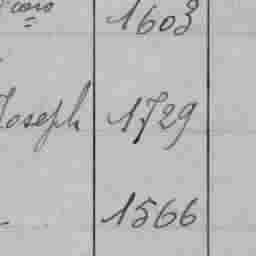 1603
Joseph 1729
1566